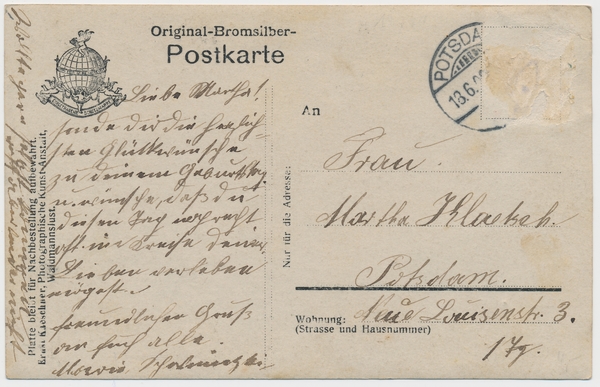 Original-Bromsilber-
Postkarte
POTSDA
18.6.0
Liebe Martha!
sende dir die herzlich-
sten Glückwünsche
zu deinem Geburtstag
u. wünsche, daß du
diesen Tag noch recht
oft im Kreise deiner
Lieben verleben
mögest.
freundlicher Gruß
an Euch alle.
Marie
An
Frau.
Martha Klaetsch.
Potsdam.
Neue Louisenstr. 3.
Nur für die Adresse:
Wohnung:
(Strasse und Hausnummer)
Platte bleibt für Nachbestellung aufbewahrt.
Photographische Kunst-Anstalt,
Waidmannslust.